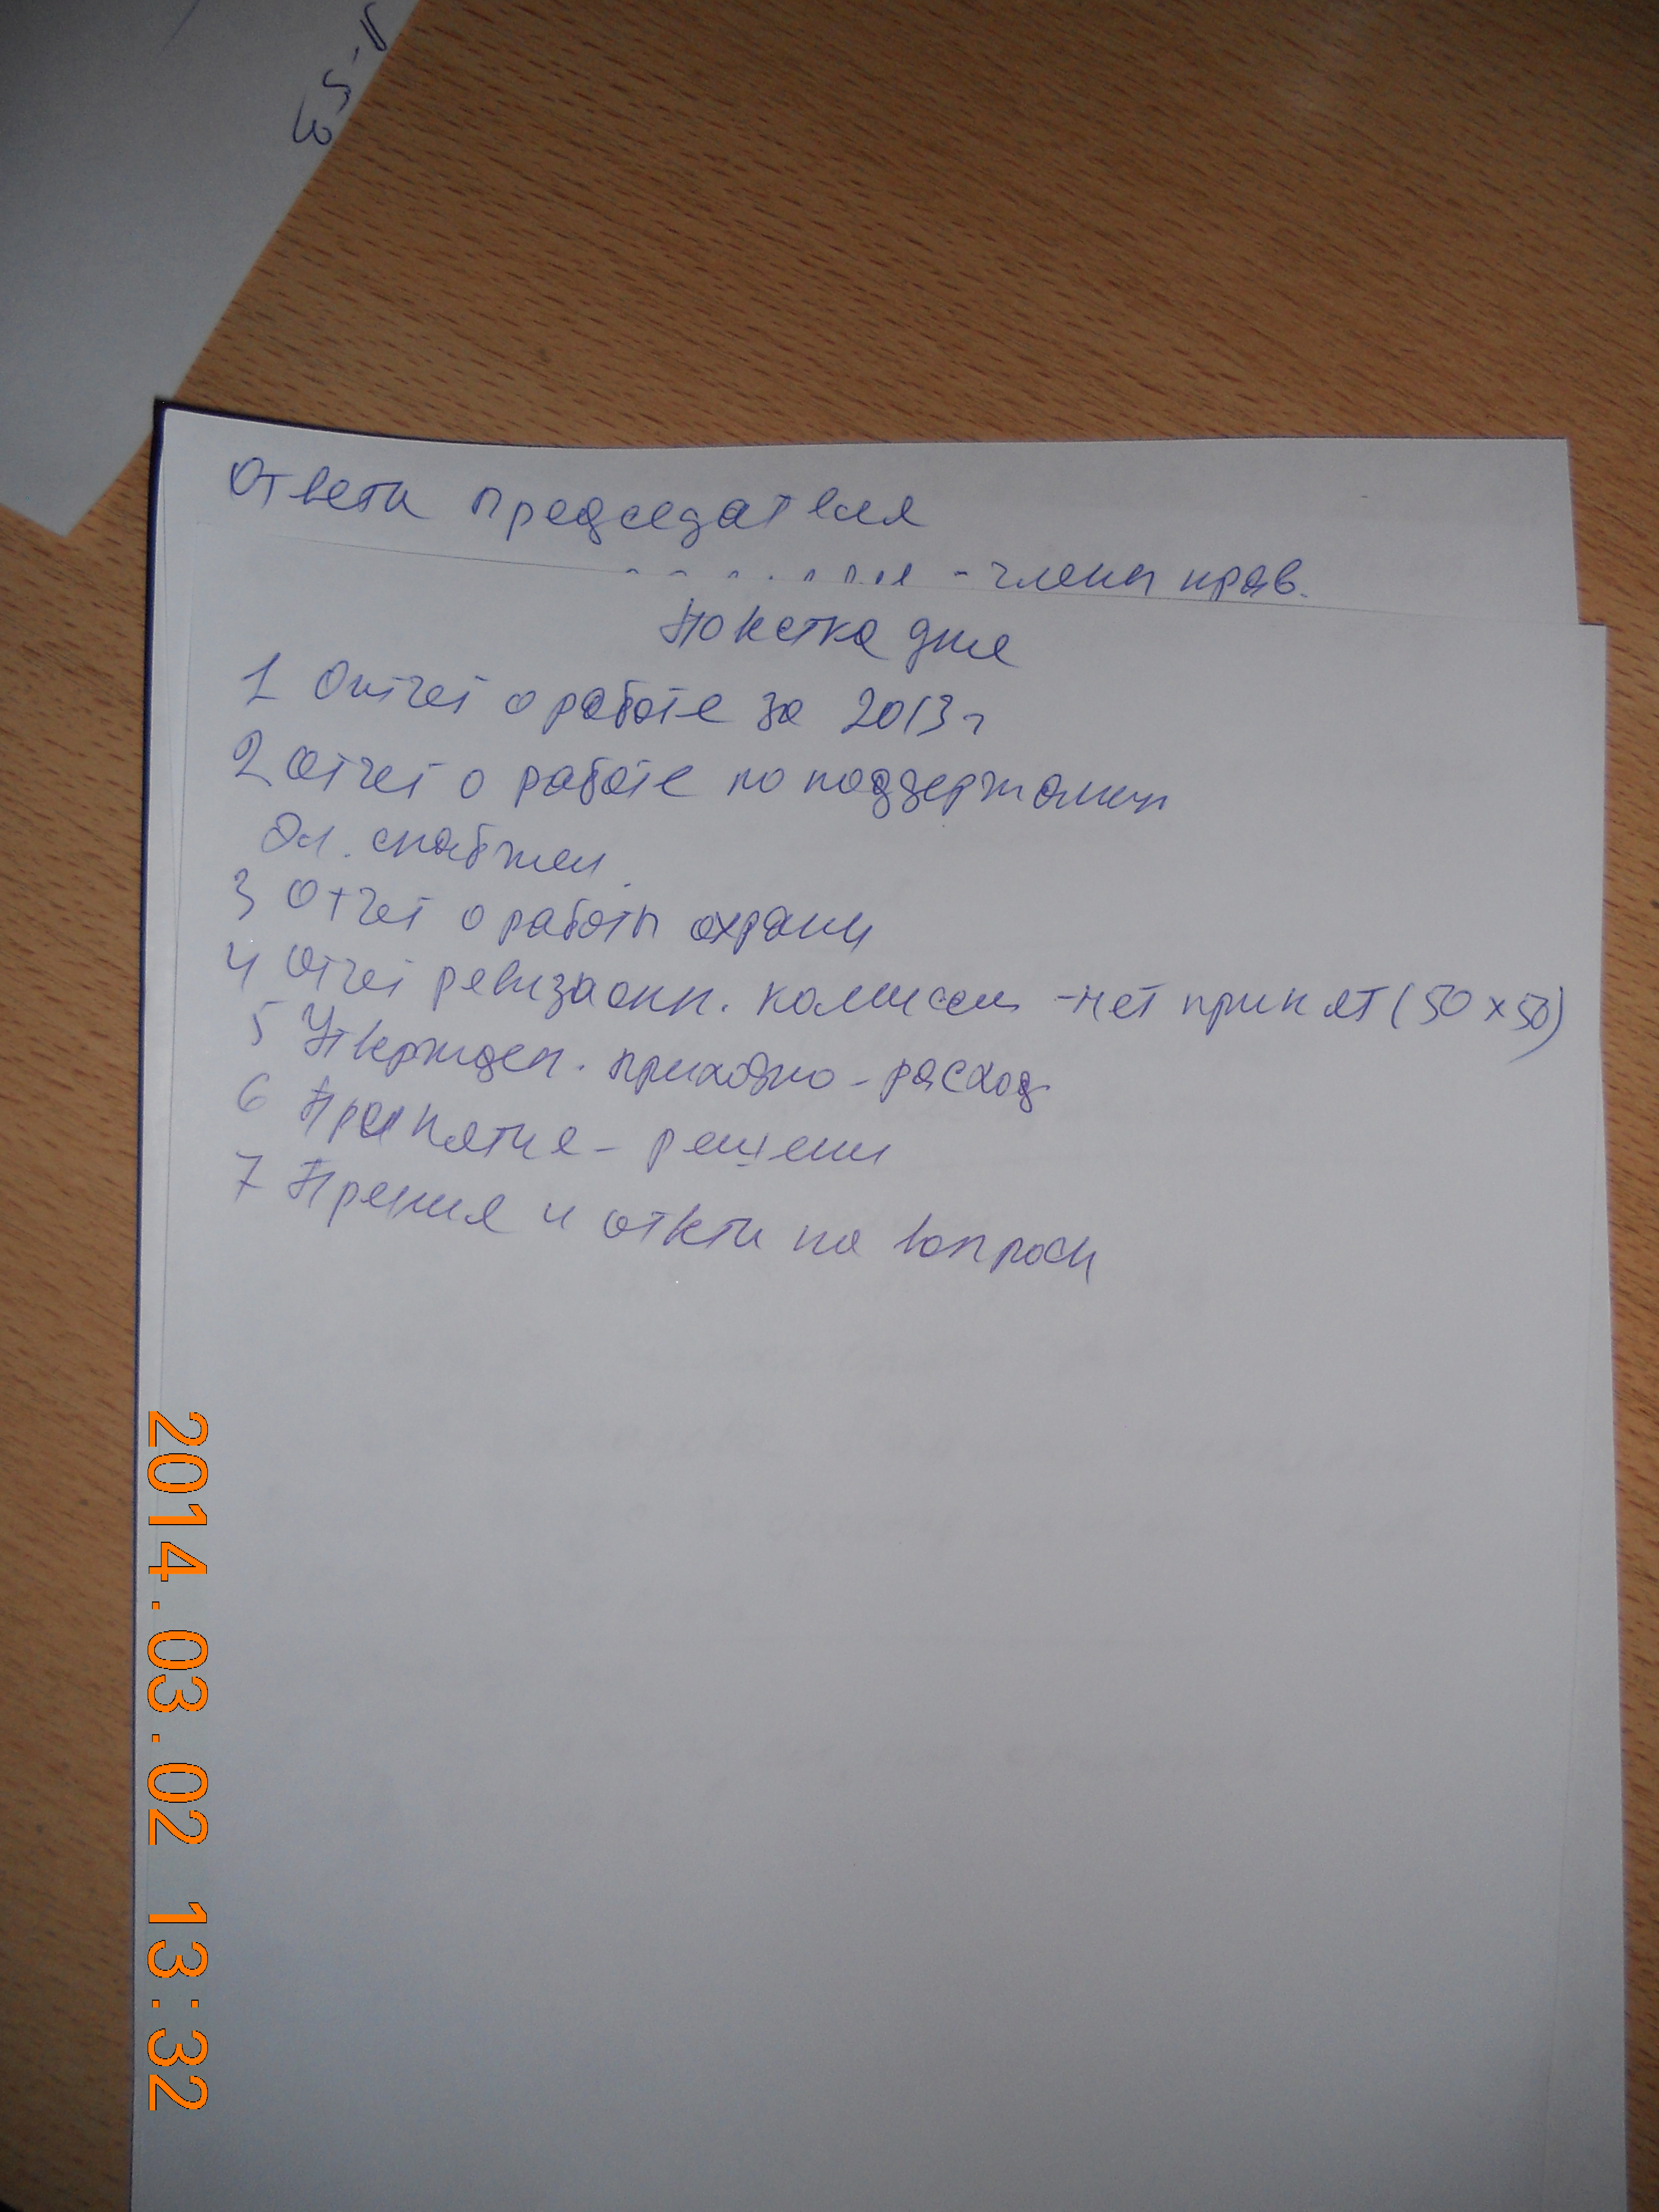 Ответы председателя
- члены прав.
Повестка дня
1 Отчет о работе за 2013 г
2 Отчет о работе по поддержанию
Эл. снабжен.
3 Отчет о работы охраны
4 Отчет ревизионн. комиссии - нет принят (50 х 50)
5 Утвержден. приходно - расход
6 Принятие - решени
7 Прения и ответы на вопросы
2014.03.02 13:32